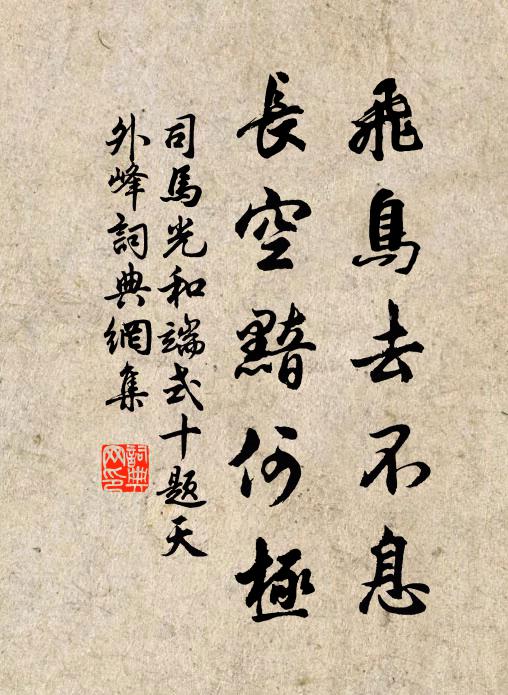 飛鳥去不息
長空黯何極
司馬光和端式十题天
外峰詞典網集
詞典網印